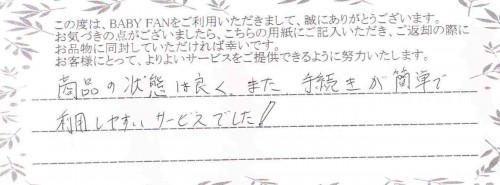 この度は、BABY FANをご利用いただきまして、誠にありがとうございます。
お気づきの点がございましたら、こちらの用紙にご記入いただき、ご返却の際に
お品物に同封していただければ幸いです。
お客様にとって、よりよいサービスをご提供できるように努力いたします。
商品の状態は良く、また、手続きが簡単で
利用しやすいサービスでした!